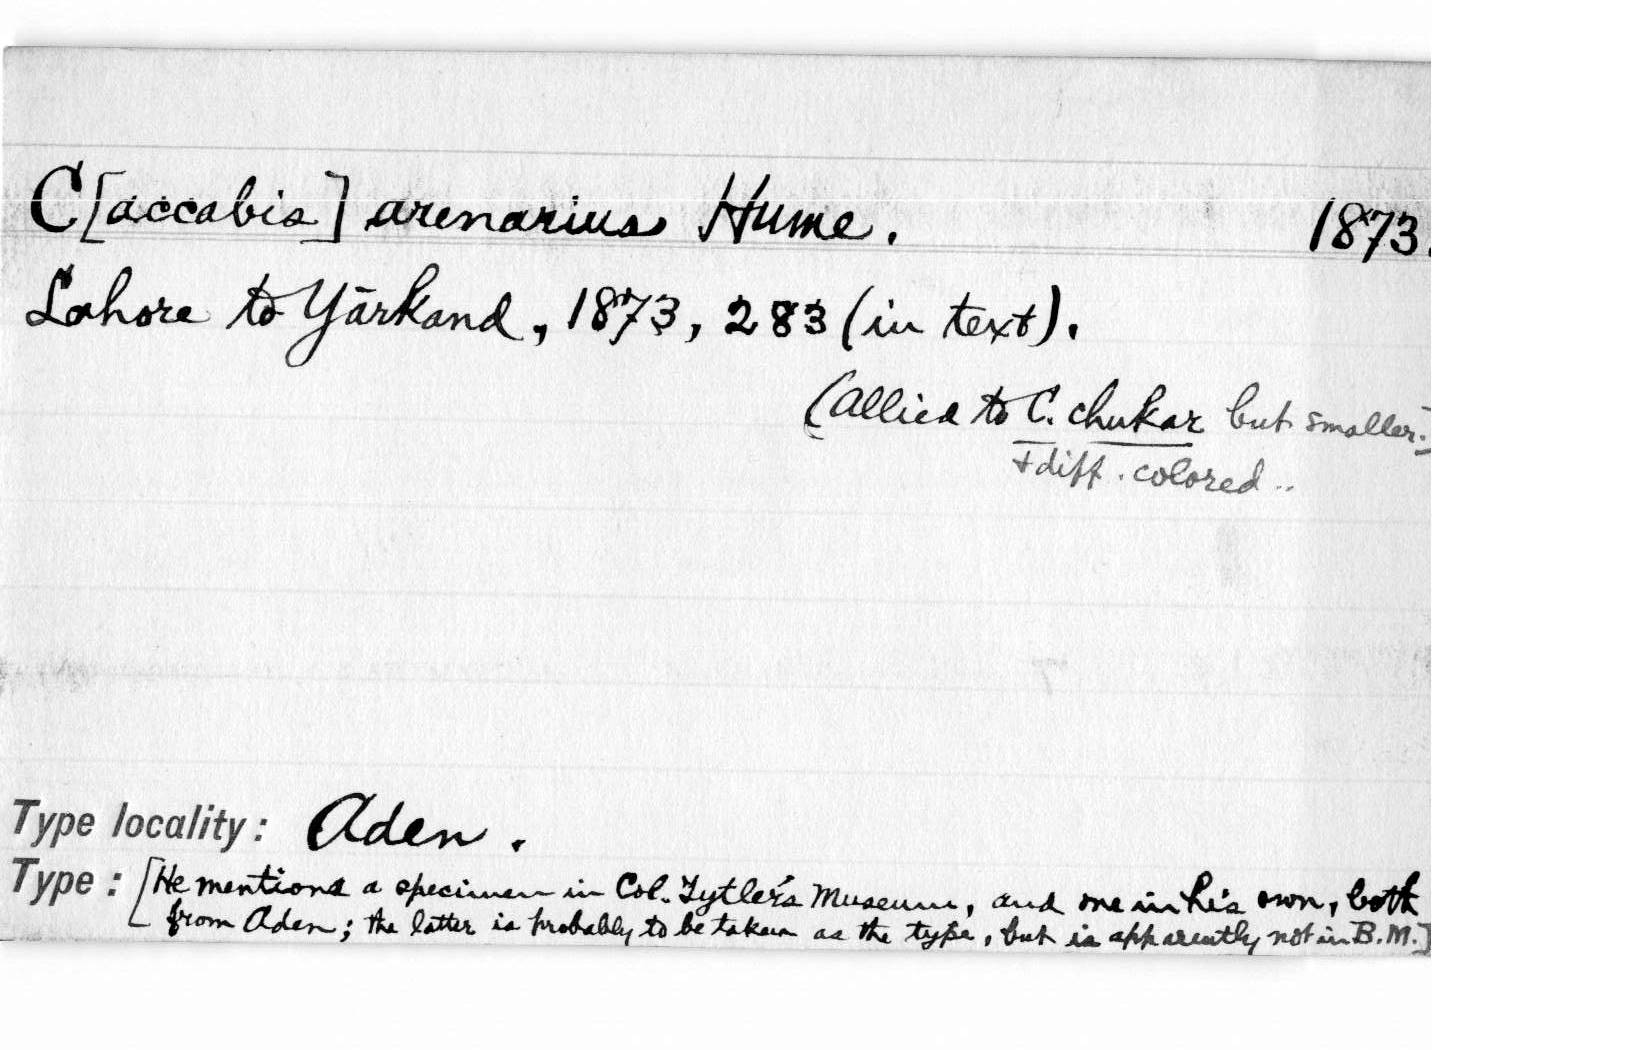 C[accabis] arenarius Hume. 1873.
Lahore to Yārkand, 1873, 283 (in text).
(Allied to C. chukar but smaller.)
+ diff. colored ..
Type locality: Aden.
Type: [He mentions a specimen in Col. Tytler's Museum, and one in his own, both
from Aden; the latter is probably to be taken as the type, but is apparently not in B.M.]